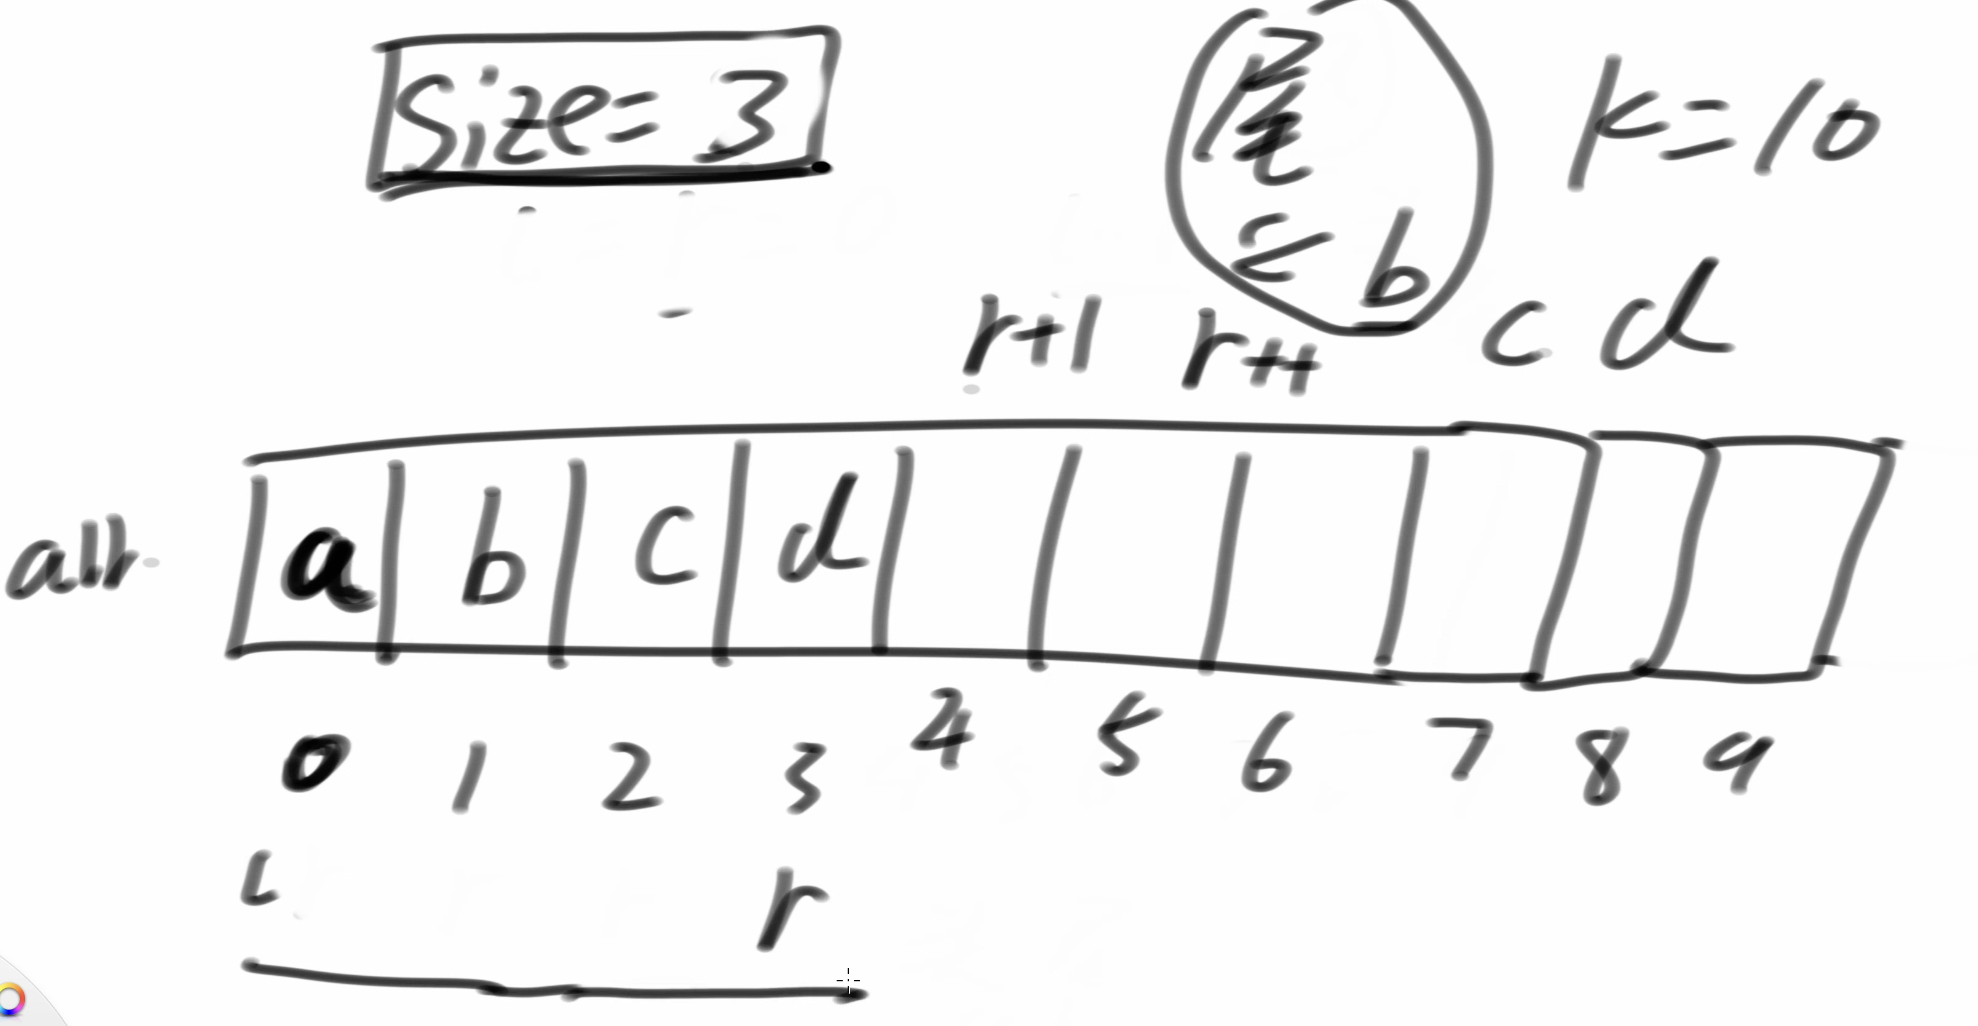 Size=3
k=10
b
c d
r+1 r++
arr a b c d
0 1 2 3 4 5 6 7 8 9
l r